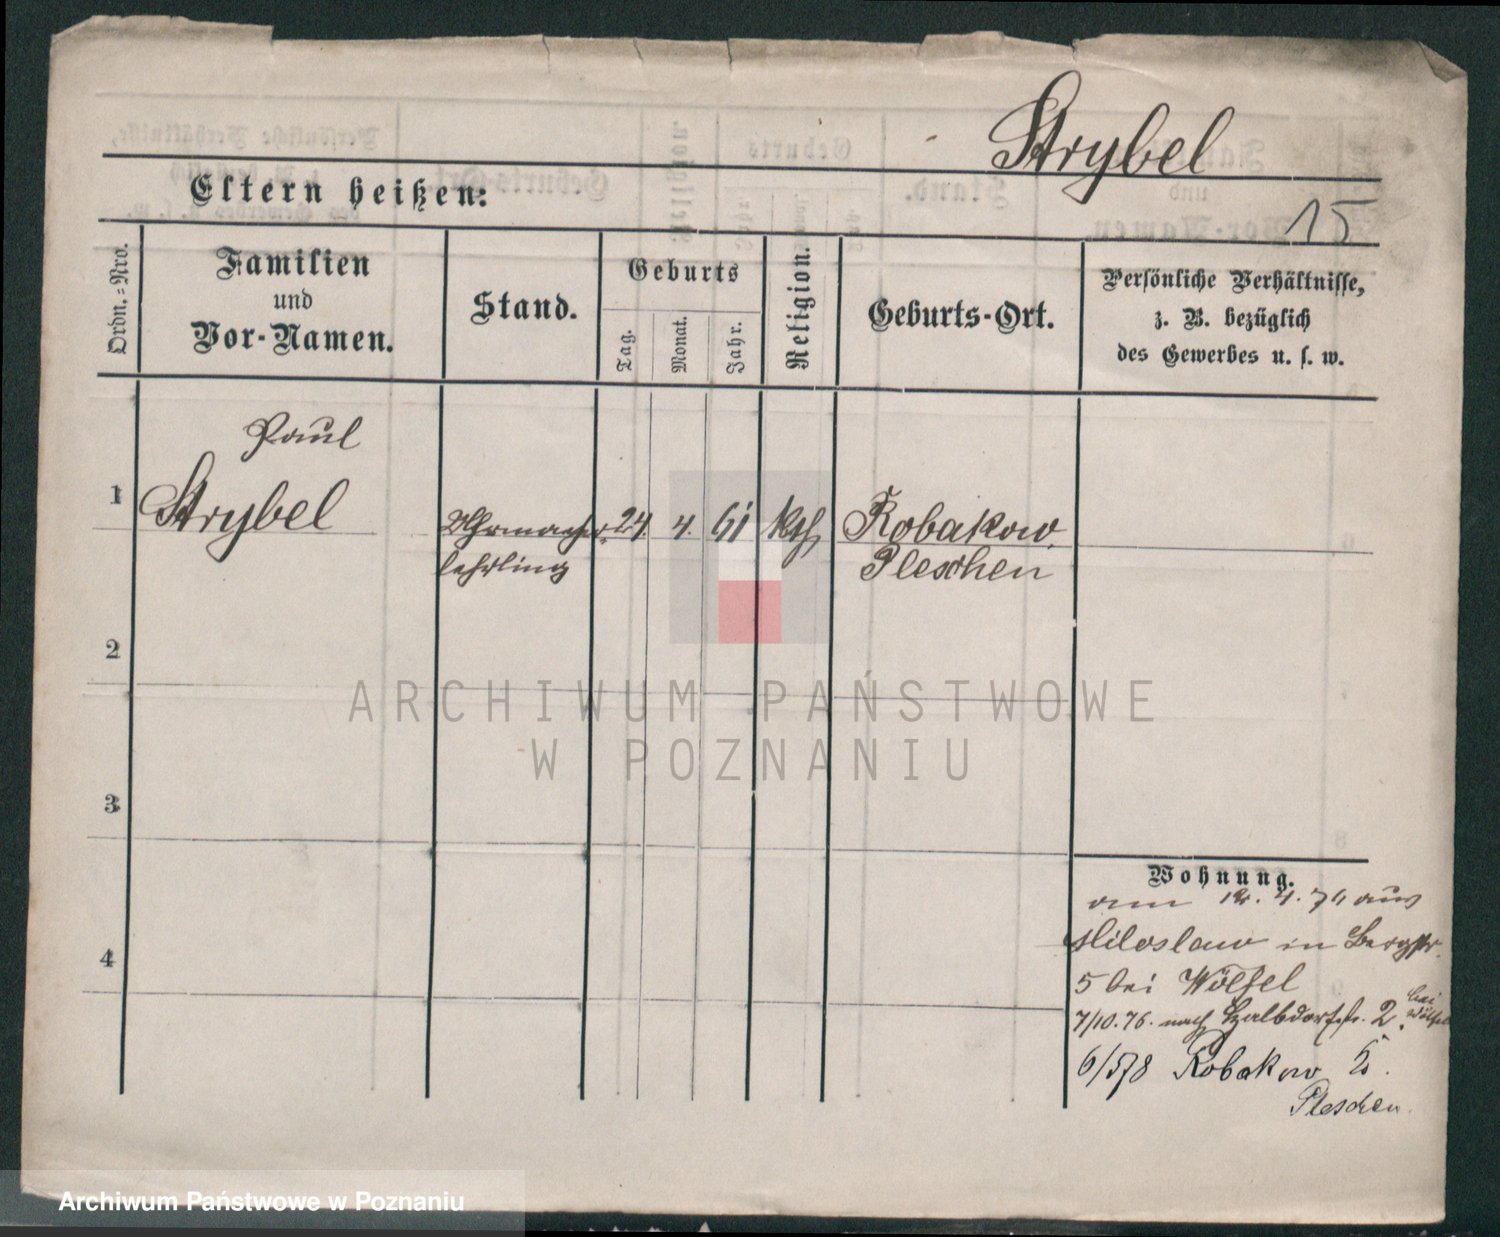 Strybel
Eltern heißen:
15
Ordn.=Nro.
Familien
und
Vor-Namen.
Stand.
Geburts
Tag.
Monat.
Jahr.
Religion.
Geburts-Ort.
Persönliche Verhältnisse,
z. B. bezüglich
des Gewerbes u. s. w.
Paul
1 Strybel
Uhrmacher
lehrling
24. 4. 61 kth
Robakow
Pleschen
2
3
4
ARCHIWUM PAŃSTWOWE
W POZNANIU
Wohnung.
4. 76 aus
Miloslaw in Bergstr.
5 bei Wölfel
7/10.76. nach Halbdorfstr. 2. bei
Wölfel
6/5 78 Robakow
Pleschen.
Archiwum Państwowe w Poznaniu